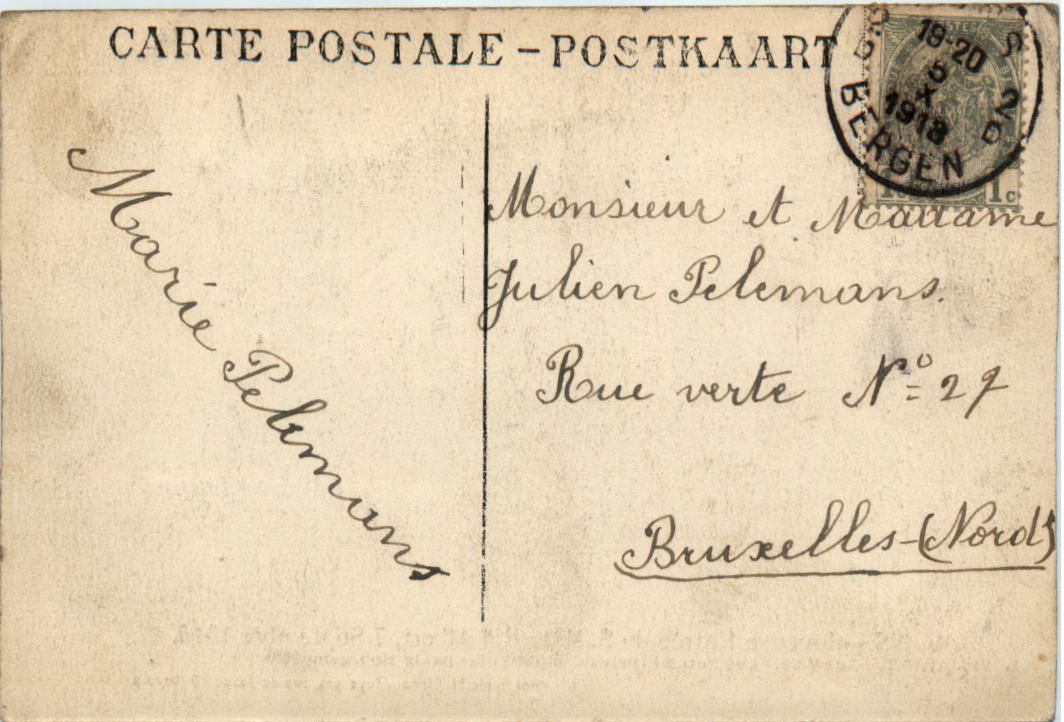 CARTE POSTALE – POSTKAART
19-20
5
X
1913
2
BERGEN
1c
Marie Pelemans
Monsieur et Madame
Julien Pelemans.
Rue verte Nº 27
Bruxelles-(Nord)